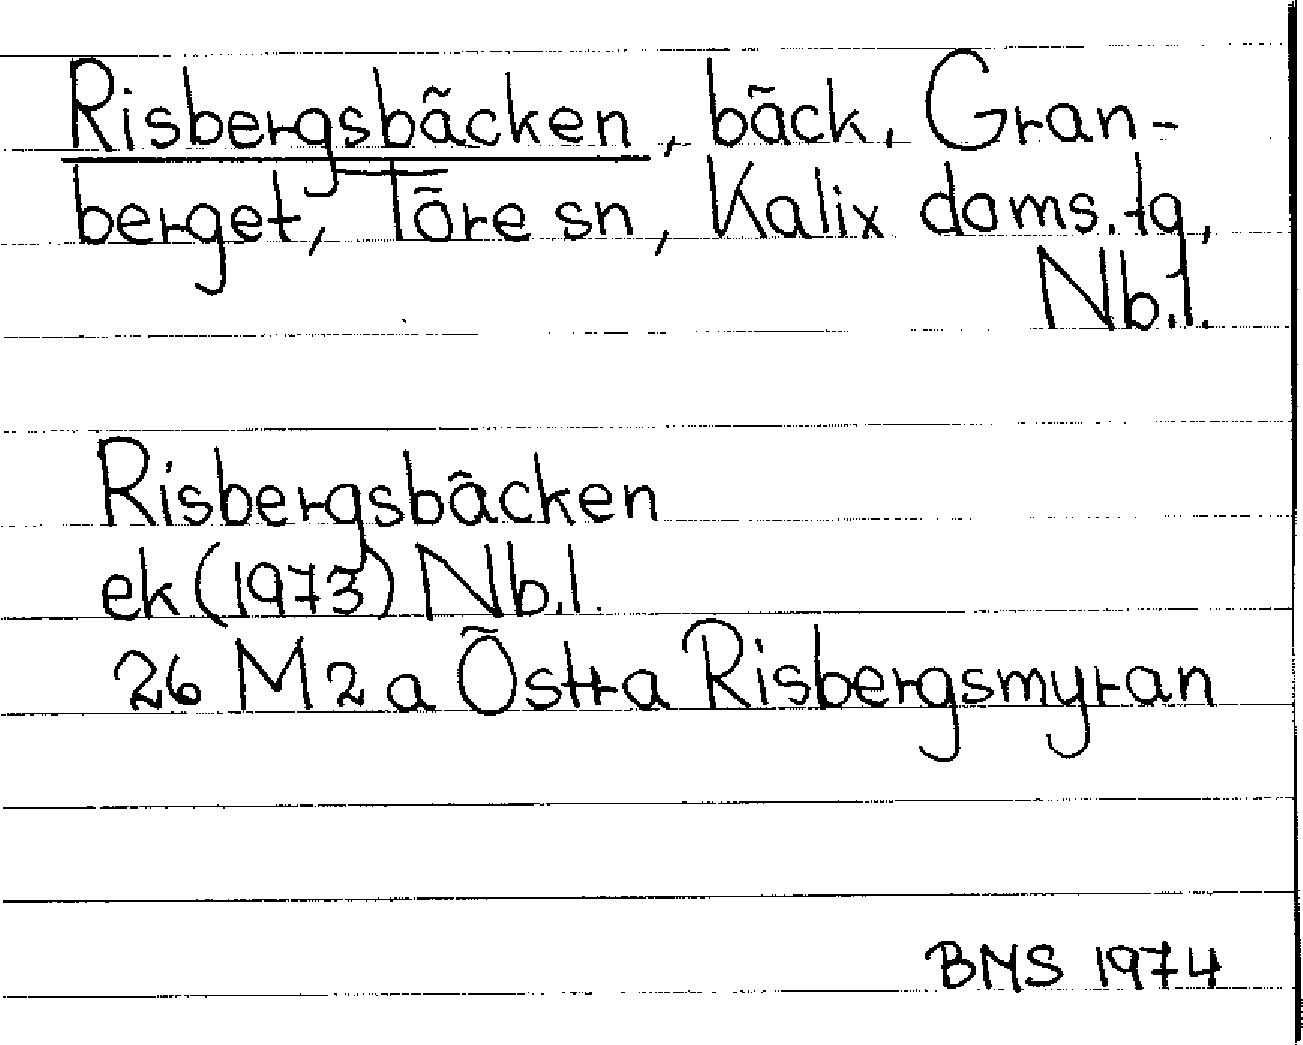 Risbergsbäcken, bäck, Gran-
berget, Töre sn, Kalix doms. tg,
Nb.l.
Risbergsbäcken
ek (1973) Nb.l.
26 M 2 a Östra Risbergsmyran
BMS 1974